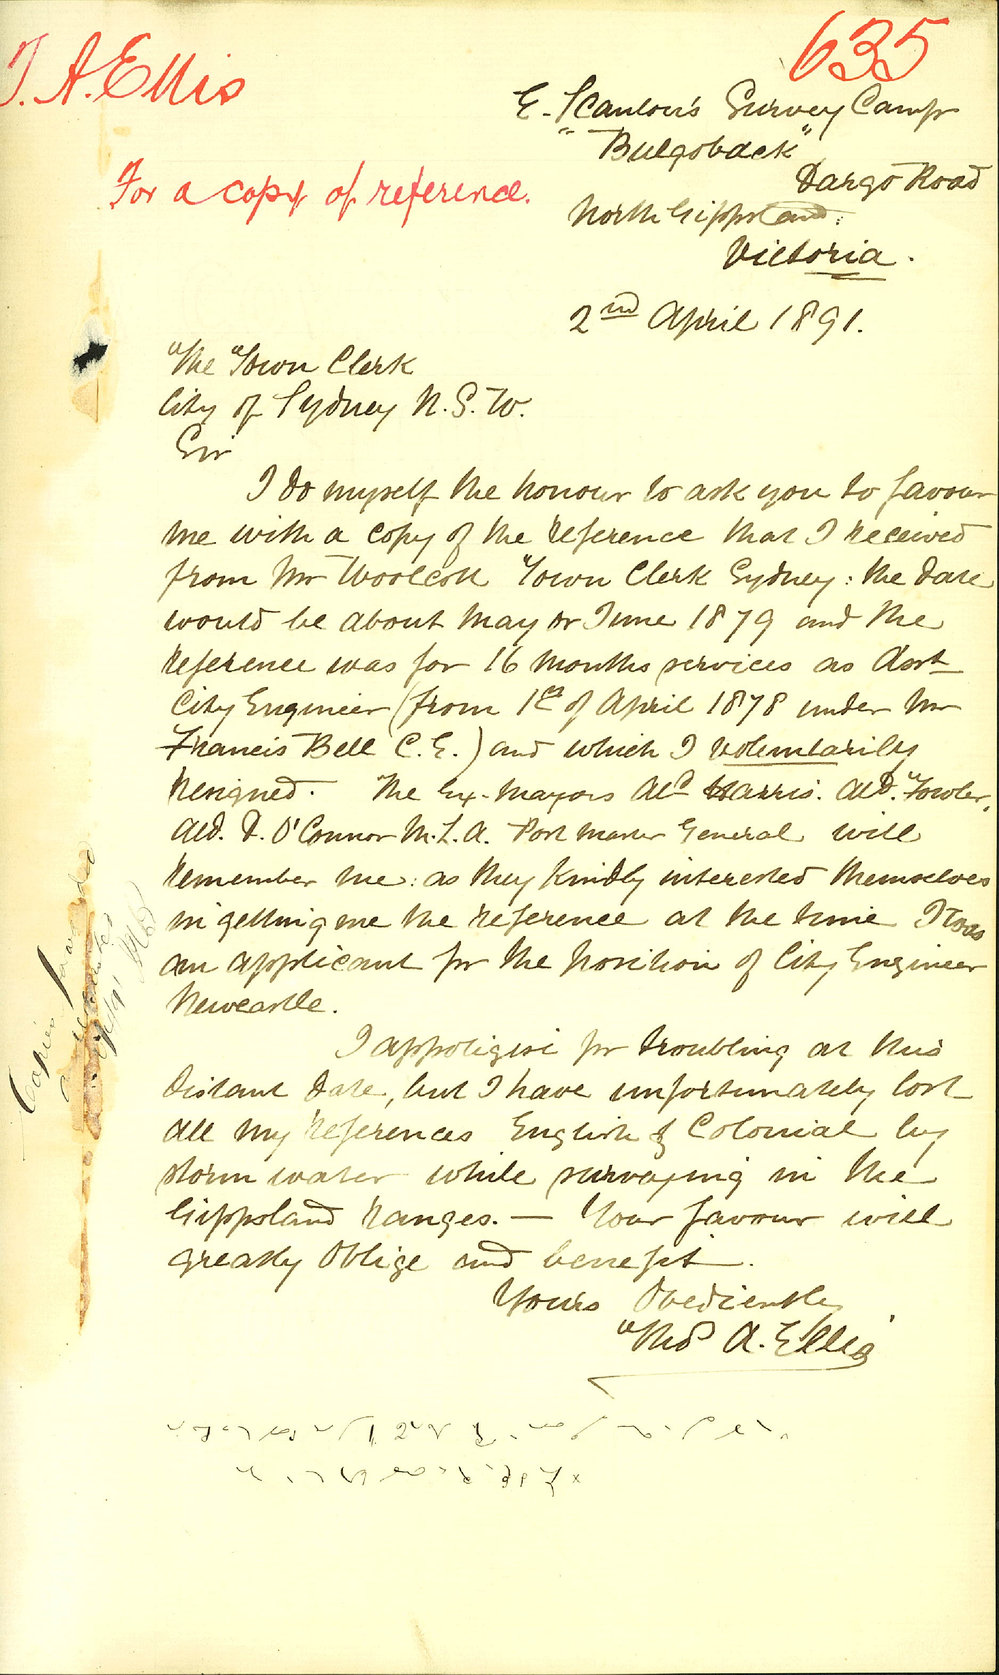 635
T. A. Ellis
For a copy of reference.
E. Scanlon's Survey Camp
"Bulgoback"
Dargo Road
North Gippsland:
Victoria.
2nd April 1891.
The Town Clerk
City of Sydney N. S. W.
Sir
I do myself the honour to ask you to favour
me with a copy of the reference that I received
from Mr Woolcott Town Clerk Sydney: the date
would be about May or June 1879 and the
reference was for 16 months services as Asst
City Engineer (from 1st of April 1878 under Mr
Francis Bell C. E.) and which I voluntarily
resigned. The Ex-Mayors Ald Harris. Ald. Fowler,
Ald. D. O'Connor M. L. A. Post Master General will
remember me: as they kindly interested themselves
in getting me the reference at the time I was
an applicant for the position of City Engineer
Newcastle.
I appoligise for troubling at this
distant date, but I have unfortunately lost
all my references English & Colonial by
storm water while surveying in the
Gippsland Ranges. — Your favour will
greatly oblige and benefit.
Yours Obediently
Thos A. Ellis
Copies